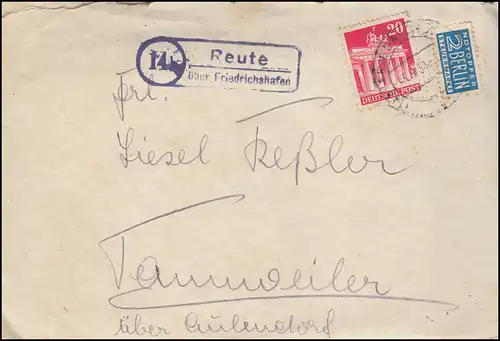 14b Reute
über Friedrichshafen
20
DEUTSCHE POST
NOTOPFER
2 BERLIN
STEUERMARKE
Frl.
Liesel Keßler
Tannweiler
über Aulendorf